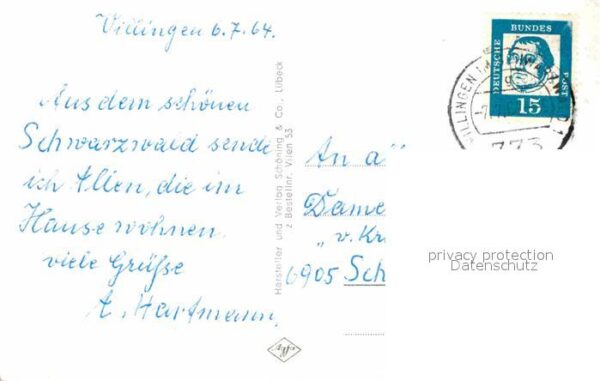 Villingen 6.7.64.
Aus dem schönen
Schwarzwald sende
ich Allen, die im
Hause wohnen
viele Grüße
A. Hartmann,
Hersteller und Verlag Schöning & Co., Lübeck
z Bestellnr. Vilien 53
DEUTSCHE
BUNDES
POST
15
VILLINGEN
773
An a
Dame
"v. Kr
6905 Sch
privacy protection
Datenschutz